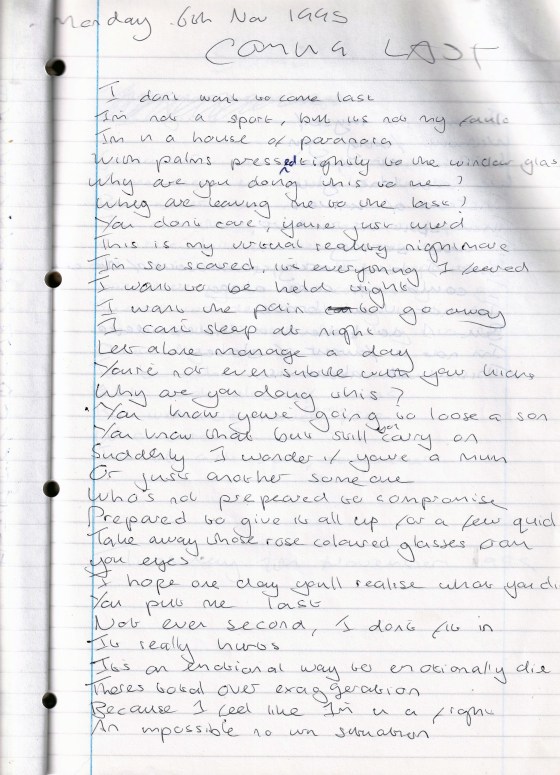 Monday 6th Nov 1995
Coming LAST
I dont want to come last
Im not a sport, but its not my fault
Im in a house of paranoia
With palms pressed tightly to the window glas
Why are you doing this to me?
Why are leaving me to the last?
You dont care, youre just weird
This is my virtual reality nightmare
Im so scared, its everything I feared
I want to be held tight
I want the pain to go away
I cant sleep at night
Let alone manage a day
Youre not ever subtle with your hints
Why are you doing this?
You know youre going to loose a son
You know that but still carry on
Suddenly I wonder if youre a mum
Or just another someone
Who's not prepeared to compromise
Prepared to give it all up for a few quid
Take away those rose coloured glasses from
you eyes
I hope one day youll realise what you di
You put me last
Not ever second, I dont fit in
It really hurts
Its an emotional way to emotionally die
Theres total over exaggeration
Because I feel like Im in a fight
An impossible to win situation